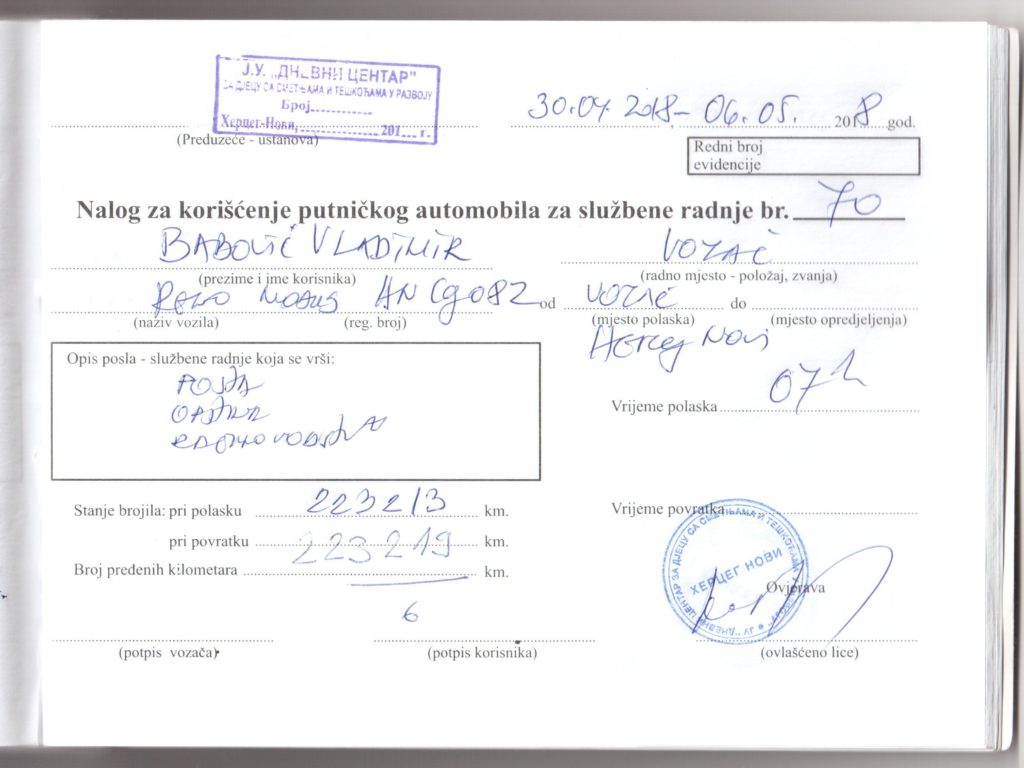 Ј.У. „ДНЕВНИ ЦЕНТАР”
ЗА ДЈЕЦУ СА СМЕТЊАМА И ТЕШКОЋАМА У РАЗВОЈУ
Број
Херцег-Нови, 201 г.
30.04 2018 - 06.05. 2018 god.
(Preduzeće - ustanova)
Redni broj
evidencije
Nalog za korišćenje putničkog automobila za službene radnje br. 70
BABOVIĆ VLADIMIR VOZAČ
(prezime i ime korisnika) (radno mjesto - položaj, zvanja)
HN CG082 od VOZAČ do
(naziv vozila) (reg. broj) (mjesto polaska) (mjesto opredjeljenja)
Herceg Novi
Opis posla - službene radnje koja se vrši:
POŠTA
07 h
Vrijeme polaska
Stanje brojila: pri polasku 223213 km.
Vrijeme povratka
pri povratku 223219 km.
Broj pređenih kilometara km.
6
ХЕРЦЕГ НОВИ
Ovjerava
(potpis vozača) (potpis korisnika) (ovlašćeno lice)